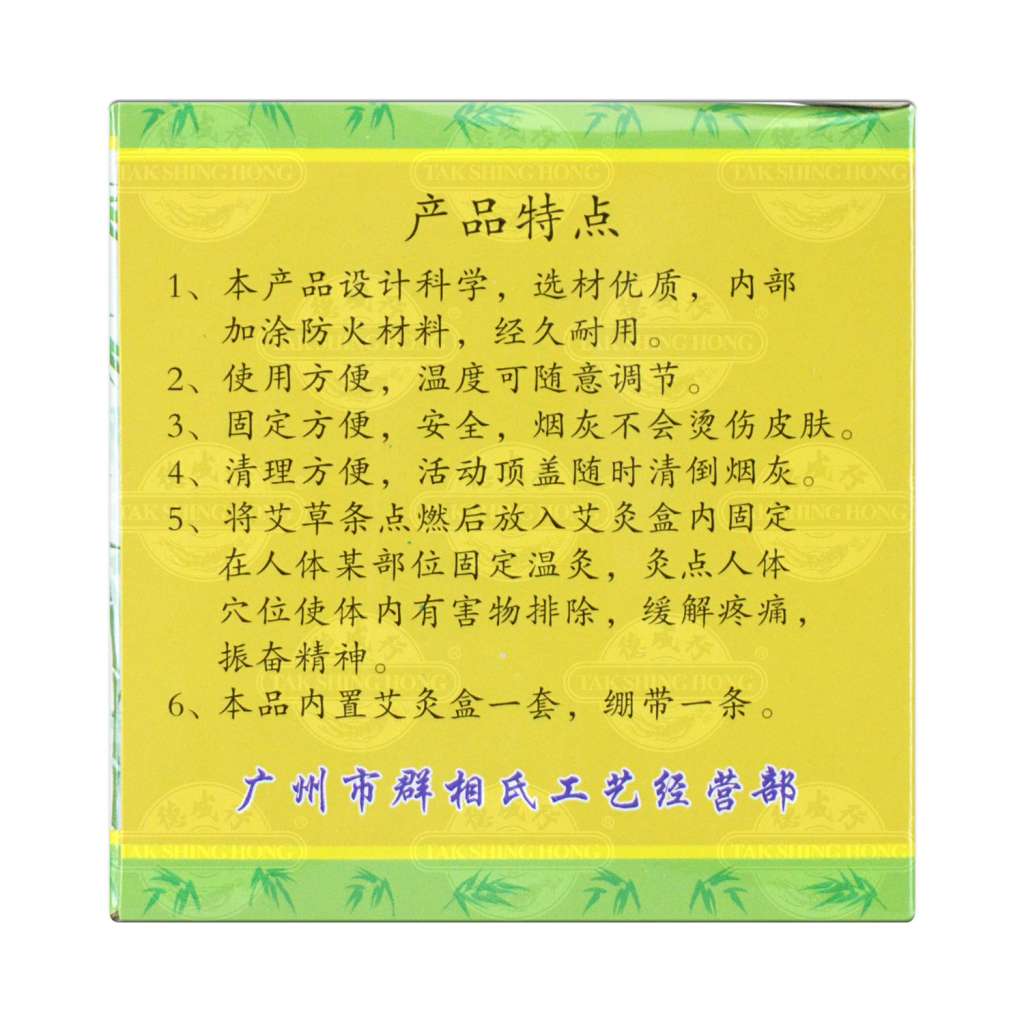 产品特点
1、本产品设计科学，选材优质，内部
加涂防火材料，经久耐用。
2、使用方便，温度可随意调节。
3、固定方便，安全，烟灰不会烫伤皮肤。
4、清理方便，活动顶盖随时清倒烟灰。
5、将艾草条点燃后放入艾灸盒内固定
在人体某部位固定温灸，灸点人体
穴位使体内有害物排除，缓解疼痛，
振奋精神。
6、本品内置艾灸盒一套，绷带一条。
广州市群相氏工艺经营部
TAK SHING HONG